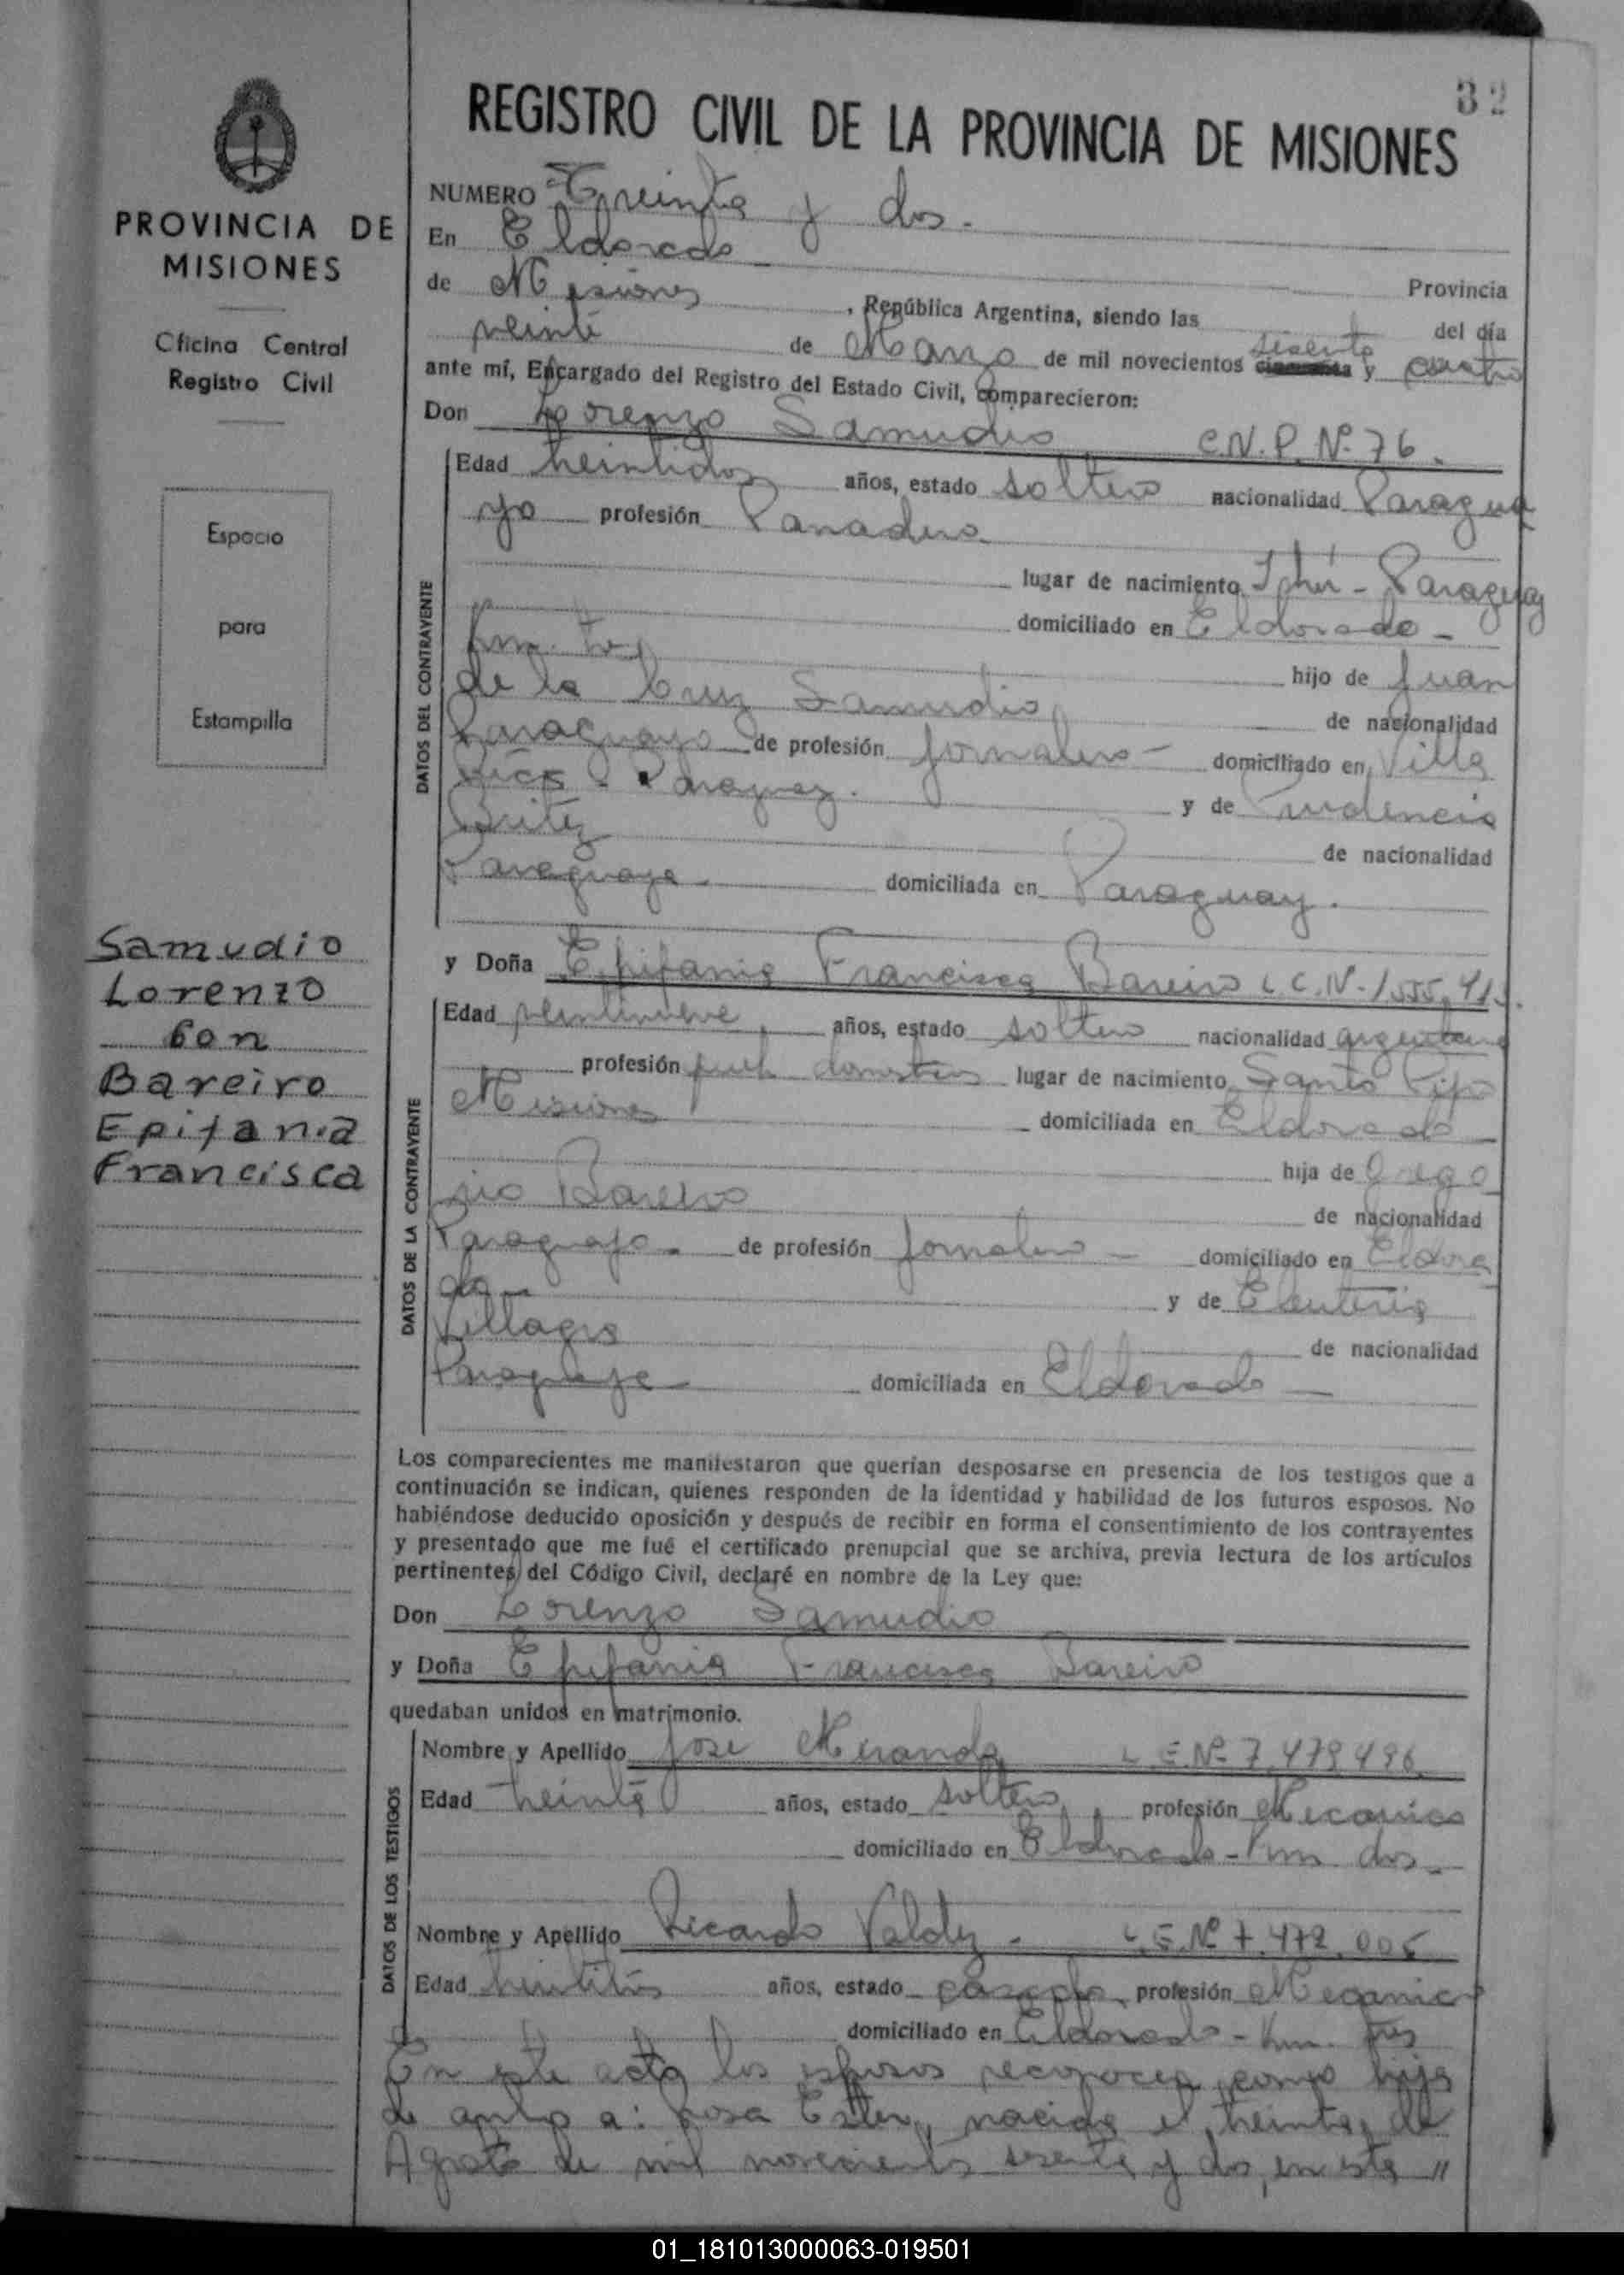 32
REGISTRO CIVIL DE LA PROVINCIA DE MISIONES
PROVINCIA DE
MISIONES
Oficina Central
Registro Civil
Espacio
para
Estampilla
Samudio
Lorenzo
con
Bareiro
Epifania
Francisca
NUMERO Treinta y dos.
En Eldorado
Provincia
de Misiones, República Argentina, siendo las del día
veinte de Marzo de mil novecientos sesenta y cuatro
ante mí, Encargado del Registro del Estado Civil, comparecieron:
Don Lorenzo Samudio C.N.P. Nº 76.
DATOS DEL CONTRAYENTE
Edad treintidos años, estado soltero nacionalidad Paragua
yo profesión Panadero
lugar de nacimiento Yhú - Paraguay
domiciliado en Eldorado -
Km. tres
hijo de Juan
de la Cruz Samudio
de nacionalidad
Paraguayo de profesión Jornalero - domiciliado en Villa
Rica - Paraguay.
y de Prudencia
Britez
de nacionalidad
Paraguaya domiciliada en Paraguay.
y Doña Epifania Francisca Bareiro L.C.N-1.555.41
DATOS DE LA CONTRAYENTE
Edad veintinueve, años, estado soltera nacionalidad argentina
profesión domesticos lugar de nacimiento Santo Pipo
Misiones domiciliada en Eldorado
hija de Grego
rio Bareiro
de nacionalidad
Paraguayo. de profesión Jornalero - domiciliado en Eldora
do - y de Eleuteria
Villagra
de nacionalidad
Paraguaya domiciliada en Eldorado -
Los comparecientes me manifestaron que querían desposarse en presencia de los testigos que a
continuación se indican, quienes responden de la identidad y habilidad de los futuros esposos. No
habiéndose deducido oposición y después de recibir en forma el consentimiento de los contrayentes
y presentado que me fué el certificado prenupcial que se archiva, previa lectura de los artículos
pertinentes del Código Civil, declaré en nombre de la Ley que:
Don Lorenzo Samudio
y Doña Epifania Francisca Bareiro
quedaban unidos en matrimonio.
DATOS DE LOS TESTIGOS
Nombre y Apellido José Miranda L.E.Nº 7.479.496
Edad treinta años, estado soltero profesión Mecanico
domiciliado en Eldorado - Km dos -
Nombre y Apellido Ricardo Valdez - L.E.Nº 7.472.005
Edad treintitrés años, estado casado profesión Mecanic
o domiciliado en Eldorado - Km. tres
En este acto los esposos reconocen como hija
de ambos a: Rosa Ester, nacida el treinta de
Agosto de mil novecientos sesenta y dos, en esta "
01_181013000063-019501